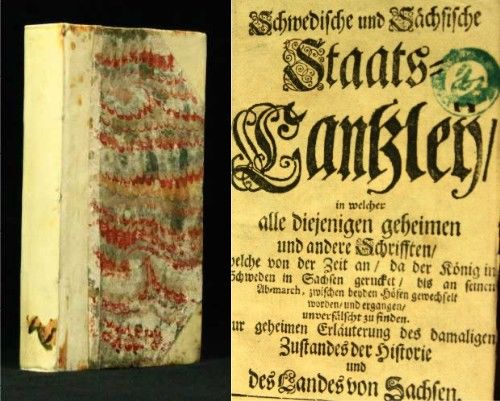 Schwedische und Sächsische
Staats-
Cantzley/
in welcher
alle diejenigen geheimen
und andere Schrifften/
welche von der Zeit an/ da der König in
Schweden in Sachsen gerucket/ bis an seinen
Abmarch, zwischen beyden Höfen gewechselt
worden/ und ergangen/
unverfälscht zu finden.
ur geheimen Erläuterung des damaligen
Zustandes der Historie
und
des Landes von Sachsen.